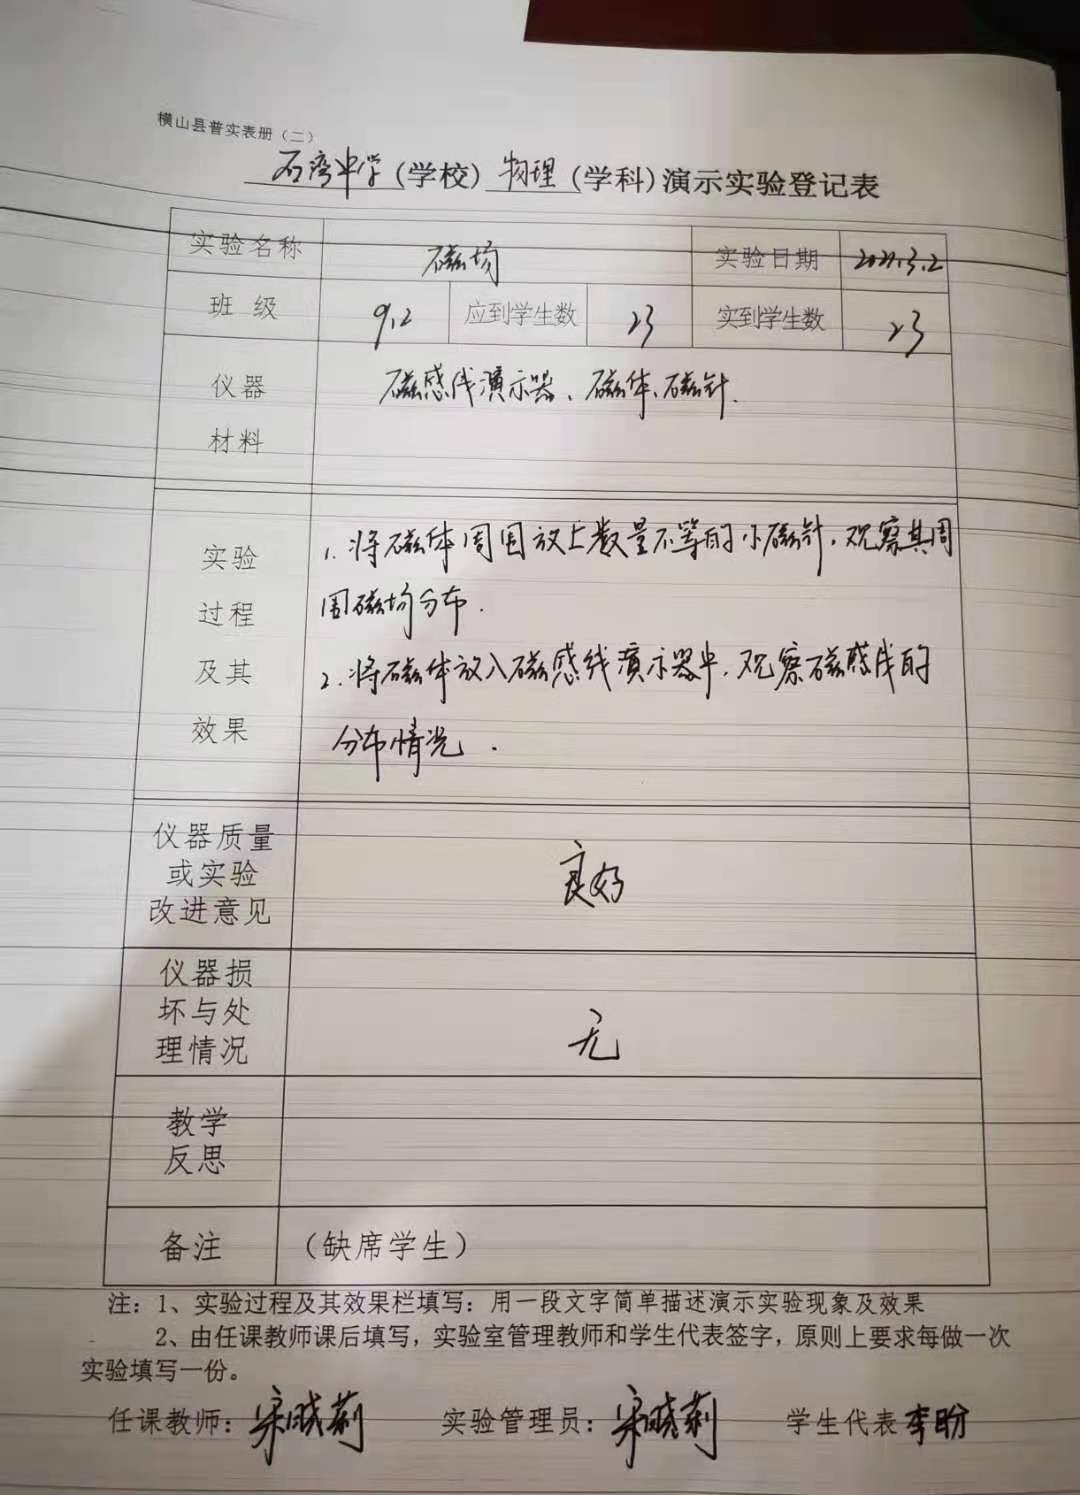 横山县普实表册（二）
石湾中学（学校）物理（学科）演示实验登记表
实验名称 磁场 实验日期 2021.3.2
班级 9.2 应到学生数 23 实到学生数 23
仪器 磁感线演示器、磁体、磁针.
材料
实验 1.将磁体周围放上数量不等的小磁针,观察其周
过程 围磁场分布.
及其 2.将磁体放入磁感线演示器中.观察磁感线的
效果 分布情况.
仪器质量
或实验 良好
改进意见
仪器损
坏与处
理情况 无
教学
反思
备注 （缺席学生）
注：1、实验过程及其效果栏填写：用一段文字简单描述演示实验现象及效果
2、由任课教师课后填写，实验室管理教师和学生代表签字，原则上要求每做一次
实验填写一份。
任课教师：宋晓莉 实验管理员：宋晓莉 学生代表 李盼